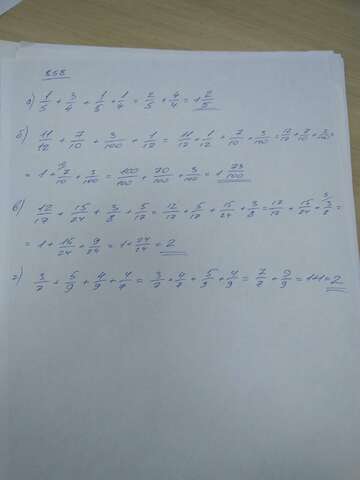 858
а) 1/5 + 3/4 + 1/5 + 1/4 = 2/5 + 4/4 = 1 2/5
б) 11/12 + 7/10 + 3/100 + 1/12 = 11/12 + 1/12 + 7/10 + 3/100 = 12/12 + 7/10 + 3/100 =
= 1 + 7/10 + 3/100 = 100/100 + 70/100 + 3/100 = 1 73/100
в) 12/17 + 15/24 + 3/8 + 5/17 = 12/17 + 5/17 + 15/24 + 3/8 = 17/17 + 15/24 + 3/8 =
= 1 + 15/24 + 9/24 = 1 + 24/24 = 2
г) 3/7 + 5/9 + 4/9 + 4/7 = 3/7 + 4/7 + 5/9 + 4/9 = 7/7 + 9/9 = 1+1 = 2